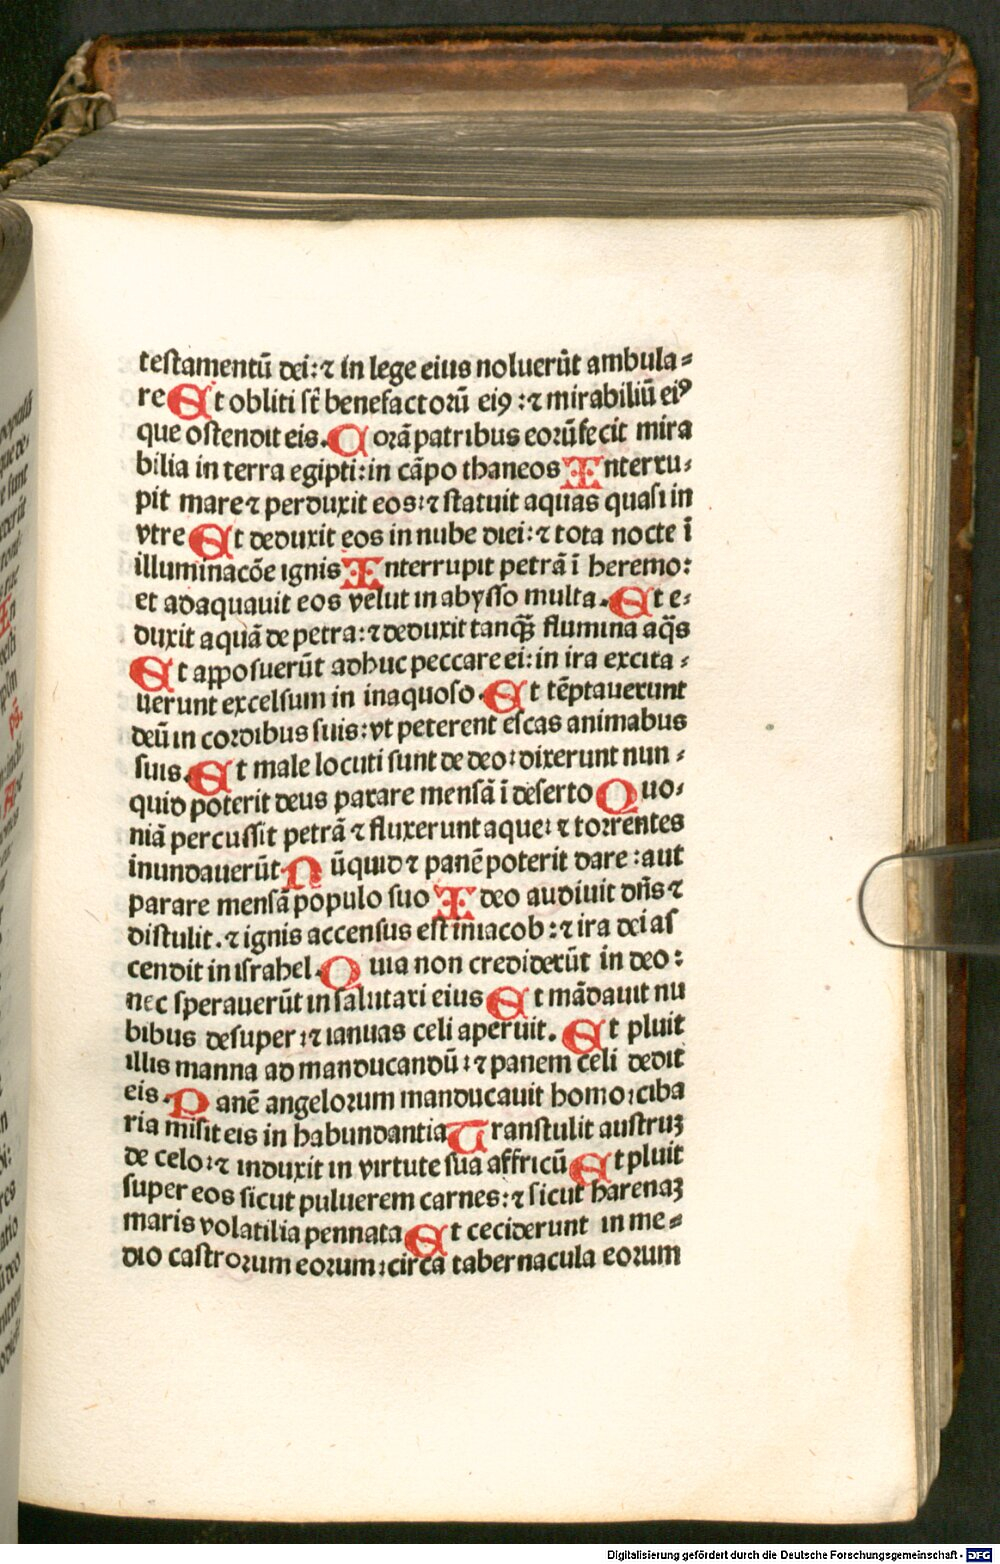 testamentū dei:⁊ in lege eius noluerūt ambula⸗
re Et obliti sūt benefactorū eiꝰ:⁊ mirabiliū eiꝰ
que ostendit eis. Corā patribus eorū fecit mira
bilia in terra egipti:in cāpo thaneos Interru⸗
pit mare ⁊ perduxit eos:⁊ statuit aquas quasi in
vtre Et deduxit eos in nube diei:⁊ tota nocte ī
illuminacōe ignis Interrupit petrā ī heremo:
et adaquauit eos velut in abysso multa. Et e⸗
duxit aquā de petra:⁊ deduxit tanq̄ȝ flumina aq̄s
Et apposuerūt adhuc peccare ei:in ira excita⸗
uerunt excelsum in inaquoso. Et tēptauerunt
deū in cordibus suis:vt peterent escas animabus
suis. Et male locuti sunt de deo:dixerunt nun⸗
quid poterit deus parare mensā ī deserto Quo⸗
niā percussit petrā ⁊ fluxerunt aque:⁊ torrentes
inundauerūt Nūquid ⁊ panē poterit dare:aut
parare mensā populo suo Ideo audiuit dn̄s ⁊
distulit.⁊ ignis accensus est in iacob:⁊ ira dei as
cendit in israhel. Quia non crediderūt in deo:
nec sperauerūt in salutari eius Et mādauit nu
bibus desuper:⁊ ianuas celi aperuit. Et pluit
illis manna ad manducandū:⁊ panem celi dedit
eis. Panē angelorum manducauit homo:ciba
ria misit eis in habundantia Transtulit austruȝ
de celo:⁊ induxit in virtute sua affricū Et pluit
super eos sicut puluerem carnes:⁊ sicut harenaȝ
maris volatilia pennata Et ceciderunt in me⸗
dio castrorum eorum:circa tabernacula eorum
Digitalisierung gefördert durch die Deutsche Forschungsgemeinschaft - DFG